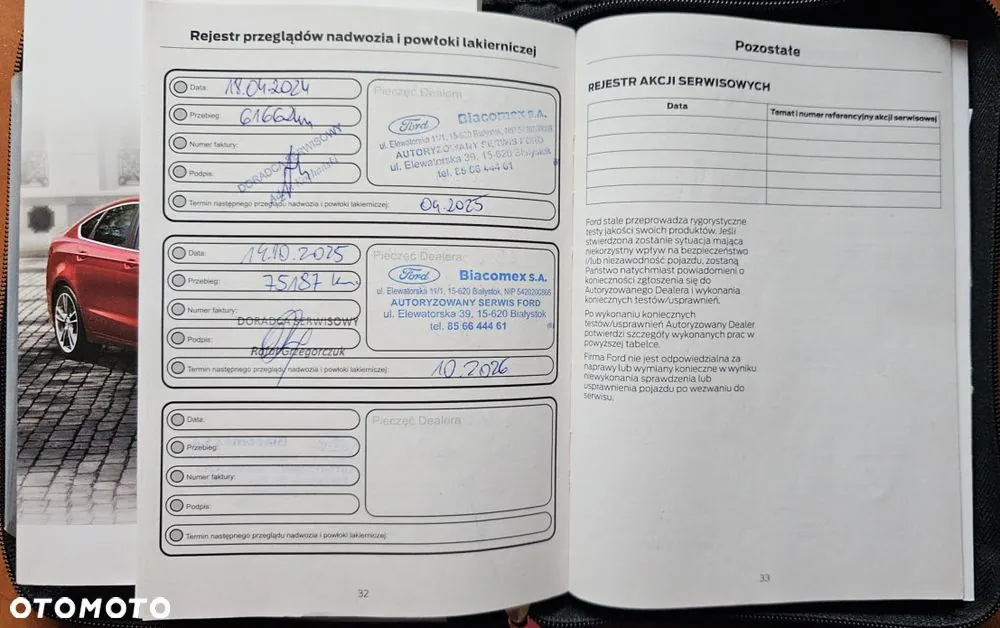 Rejestr przeglądów nadwozia i powłoki lakierniczej
Data: 18.04.2024
Przebieg: 61662km
Numer faktury:
DORADCA SERWISOWY
Podpis:
Termin następnego przeglądu nadwozia i powłoki lakierniczej: 04.2025
Pieczęć Dealera
Ford Biacomex S.A.
ul. Elewatorska 11/1, 15-620 Białystok, NIP 5420200866
AUTORYZOWANY SERWIS FORD
ul. Elewatorska 39, 15-620 Białystok
tel. 85 66 444 61
Data: 14.10.2025
Przebieg: 75187 km
Numer faktury:
DORADCA SERWISOWY
Podpis:
Rafał Grzegorczuk
Termin następnego przeglądu nadwozia i powłoki lakierniczej: 10.2026
Pieczęć Dealera
Ford Biacomex S.A.
ul. Elewatorska 11/1, 15-620 Białystok, NIP 5420200866
AUTORYZOWANY SERWIS FORD
ul. Elewatorska 39, 15-620 Białystok
tel. 85 66 444 61
Data:
Przebieg:
Numer faktury:
Podpis:
Termin następnego przeglądu nadwozia i powłoki lakierniczej:
Pieczęć Dealera
32
Pozostałe
REJESTR AKCJI SERWISOWYCH
Data Temat i numer referencyjny akcji serwisowej
Ford stale przeprowadza rygorystyczne
testy jakości swoich produktów. Jeśli
stwierdzona zostanie sytuacja mająca
niekorzystny wpływ na bezpieczeństwo
i/lub niezawodność pojazdu, zostaną
Państwo natychmiast powiadomieni o
konieczności zgłoszenia się do
Autoryzowanego Dealera i wykonania
koniecznych testów/usprawnień.
Po wykonaniu koniecznych
testów/usprawnień Autoryzowany Dealer
potwierdzi szczegóły wykonanych prac w
powyższej tabelce.
Firma Ford nie jest odpowiedzialna za
naprawy lub wymiany konieczne w wyniku
niewykonania sprawdzenia lub
usprawnienia pojazdu po wezwaniu do
serwisu.
33
OTOMOTO